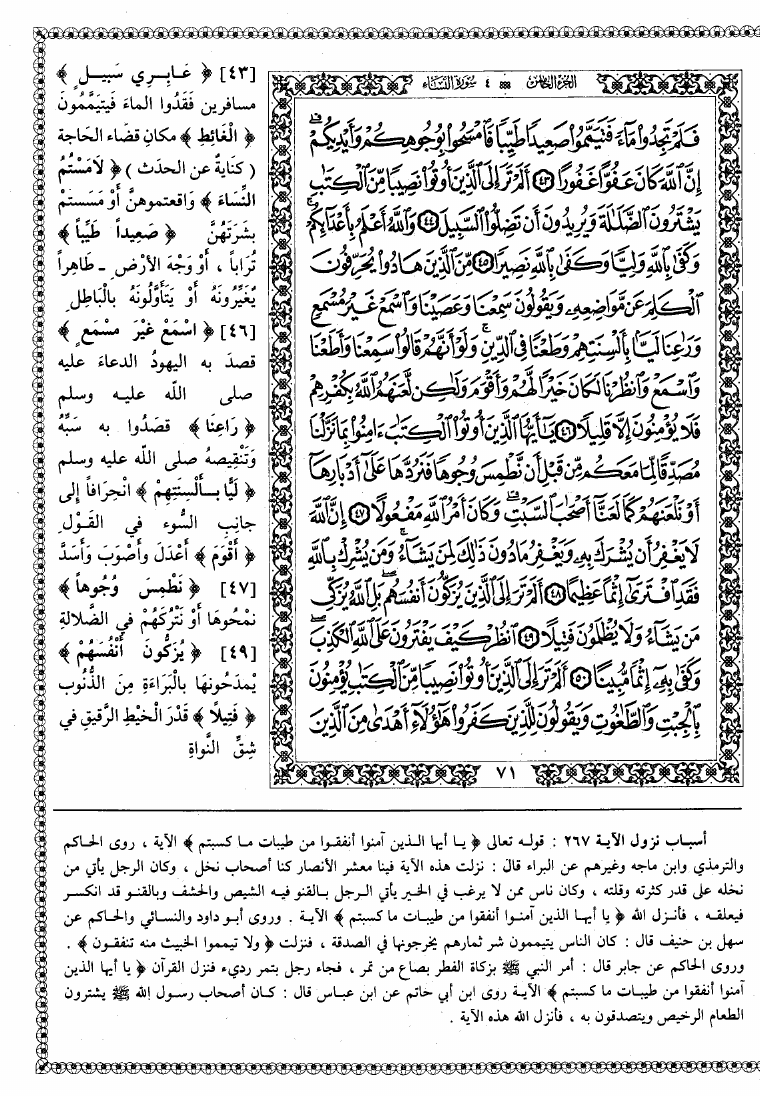 الجزء الخامس ٤ سورة النساء
فَلَمْ تَجِدُوا۟ مَآءً فَتَيَمَّمُوا۟ صَعِيدًا طَيِّبًا فَٱمْسَحُوا۟ بِوُجُوهِكُمْ وَأَيْدِيكُمْ ۗ
إِنَّ ٱللَّهَ كَانَ عَفُوًّا غَفُورًا ٤٣ أَلَمْ تَرَ إِلَى ٱلَّذِينَ أُوتُوا۟ نَصِيبًا مِّنَ ٱلْكِتَٰبِ
يَشْتَرُونَ ٱلضَّلَٰلَةَ وَيُرِيدُونَ أَن تَضِلُّوا۟ ٱلسَّبِيلَ ٤٤ وَٱللَّهُ أَعْلَمُ بِأَعْدَآئِكُمْ ۚ
وَكَفَىٰ بِٱللَّهِ وَلِيًّا وَكَفَىٰ بِٱللَّهِ نَصِيرًا ٤٥ مِّنَ ٱلَّذِينَ هَادُوا۟ يُحَرِّفُونَ
ٱلْكَلِمَ عَن مَّوَاضِعِهِۦ وَيَقُولُونَ سَمِعْنَا وَعَصَيْنَا وَٱسْمَعْ غَيْرَ مُسْمَعٍ
وَرَٰعِنَا لَيًّۢا بِأَلْسِنَتِهِمْ وَطَعْنًا فِى ٱلدِّينِ ۚ وَلَوْ أَنَّهُمْ قَالُوا۟ سَمِعْنَا وَأَطَعْنَا
وَٱسْمَعْ وَٱنظُرْنَا لَكَانَ خَيْرًا لَّهُمْ وَأَقْوَمَ وَلَٰكِن لَّعَنَهُمُ ٱللَّهُ بِكُفْرِهِمْ
فَلَا يُؤْمِنُونَ إِلَّا قَلِيلًا ٤٦ يَٰٓأَيُّهَا ٱلَّذِينَ أُوتُوا۟ ٱلْكِتَٰبَ ءَامِنُوا۟ بِمَا نَزَّلْنَا
مُصَدِّقًا لِّمَا مَعَكُم مِّن قَبْلِ أَن نَّطْمِسَ وُجُوهًا فَنَرُدَّهَا عَلَىٰٓ أَدْبَارِهَآ
أَوْ نَلْعَنَهُمْ كَمَا لَعَنَّآ أَصْحَٰبَ ٱلسَّبْتِ ۚ وَكَانَ أَمْرُ ٱللَّهِ مَفْعُولًا ٤٧ إِنَّ ٱللَّهَ
لَا يَغْفِرُ أَن يُشْرَكَ بِهِۦ وَيَغْفِرُ مَا دُونَ ذَٰلِكَ لِمَن يَشَآءُ ۚ وَمَن يُشْرِكْ بِٱللَّهِ
فَقَدِ ٱفْتَرَىٰٓ إِثْمًا عَظِيمًا ٤٨ أَلَمْ تَرَ إِلَى ٱلَّذِينَ يُزَكُّونَ أَنفُسَهُم ۚ بَلِ ٱللَّهُ يُزَكِّى
مَن يَشَآءُ وَلَا يُظْلَمُونَ فَتِيلًا ٤٩ ٱنظُرْ كَيْفَ يَفْتَرُونَ عَلَى ٱللَّهِ ٱلْكَذِبَ ۖ
وَكَفَىٰ بِهِۦٓ إِثْمًا مُّبِينًا ٥٠ أَلَمْ تَرَ إِلَى ٱلَّذِينَ أُوتُوا۟ نَصِيبًا مِّنَ ٱلْكِتَٰبِ يُؤْمِنُونَ
بِٱلْجِبْتِ وَٱلطَّٰغُوتِ وَيَقُولُونَ لِلَّذِينَ كَفَرُوا۟ هَٰٓؤُلَآءِ أَهْدَىٰ مِنَ ٱلَّذِينَ
٧١
[٤٣] ﴿ عَابِرِي سَبِيلٍ ﴾
مسافرين فَقَدُوا الماءَ فَيَتَيَمَّمُونَ
﴿ الْغَائِطِ ﴾ مكانِ قضاء الحاجة
( كنايةٌ عن الحدَث ) ﴿ لَامَسْتُمُ
النِّسَاءَ ﴾ وَاقعتموهنَّ أَوْ مَسَستمْ
بشَرَتَهُنَّ ﴿ صَعِيداً طَيِّباً ﴾
تُرَاباً ، أَوْ وَجْهَ الأرْضِ ـ طَاهِراً
يُغَيِّرُونَهُ أَوْ يَتَأَوَّلُونَهُ بالْبَاطِلِ
[٤٦] ﴿ اسْمَعْ غَيْرَ مُسْمَعٍ ﴾
قصدَ به اليهودُ الدعاءَ عليه
صلى الله عليه وسلم
﴿ رَاعِنَا ﴾ قصَدُوا به سَبَّهُ
وَتَنْقِيصهُ صلى الله عليه وسلم
﴿ لَيًّا بِأَلْسِنَتِهِمْ ﴾ انْحِرَافاً إلى
جانِبِ السُّوء في القَوْلِ
﴿ أَقْوَمَ ﴾ أَعْدَلَ وأَصْوَبَ وَأَسَدَّ
[٤٧] ﴿ نَطْمِسَ وُجُوهاً ﴾
نَمْحُوهَا أَوْ نَتْرُكَهُمْ في الضَّلالةِ
[٤٩] ﴿ يُزَكُّونَ أَنْفُسَهُمْ ﴾
يمْدَحُونهَا بالْبَرَاءَةِ مِنَ الذُّنُوب
﴿ فَتِيلًا ﴾ قَدْرَ الْخَيْطِ الرَّقيقِ في
شِقِّ النَّواةِ
أسباب نزول الآية ٢٦٧ : قوله تعالى ﴿ يا أيها الذين آمنوا أنفقوا من طيبات ما كسبتم ﴾ الآية ، روى الحاكم
والترمذي وابن ماجه وغيرهم عن البراء قال : نزلت هذه الآية فينا معشر الأنصار كنا أصحاب نخل ، وكان الرجل يأتي من
نخله على قدر كثرته وقلته ، وكان ناس ممن لا يرغب في الخير يأتي الرجل بالقنو فيه الشيص والحشف وبالقنو قد انكسر
فيعلقه ، فأنزل الله ﴿ يا أيها الذين آمنوا أنفقوا من طيبات ما كسبتم ﴾ الآية . وروى أبو داود والنسائي والحاكم عن
سهل بن حنيف قال : كان الناس يتيممون شر ثمارهم يخرجونها في الصدقة ، فنزلت ﴿ ولا تيمموا الخبيث منه تنفقون ﴾ .
وروى الحاكم عن جابر قال : أمر النبي ﷺ بزكاة الفطر بصاع من تمر ، فجاء رجل بتمر رديء فنزل القرآن ﴿ يا أيها الذين
آمنوا أنفقوا من طيبات ما كسبتم ﴾ الآية روى ابن أبي حاتم عن ابن عباس قال : كان أصحاب رسول الله ﷺ يشترون
الطعام الرخيص ويتصدقون به ، فأنزل الله هذه الآية .